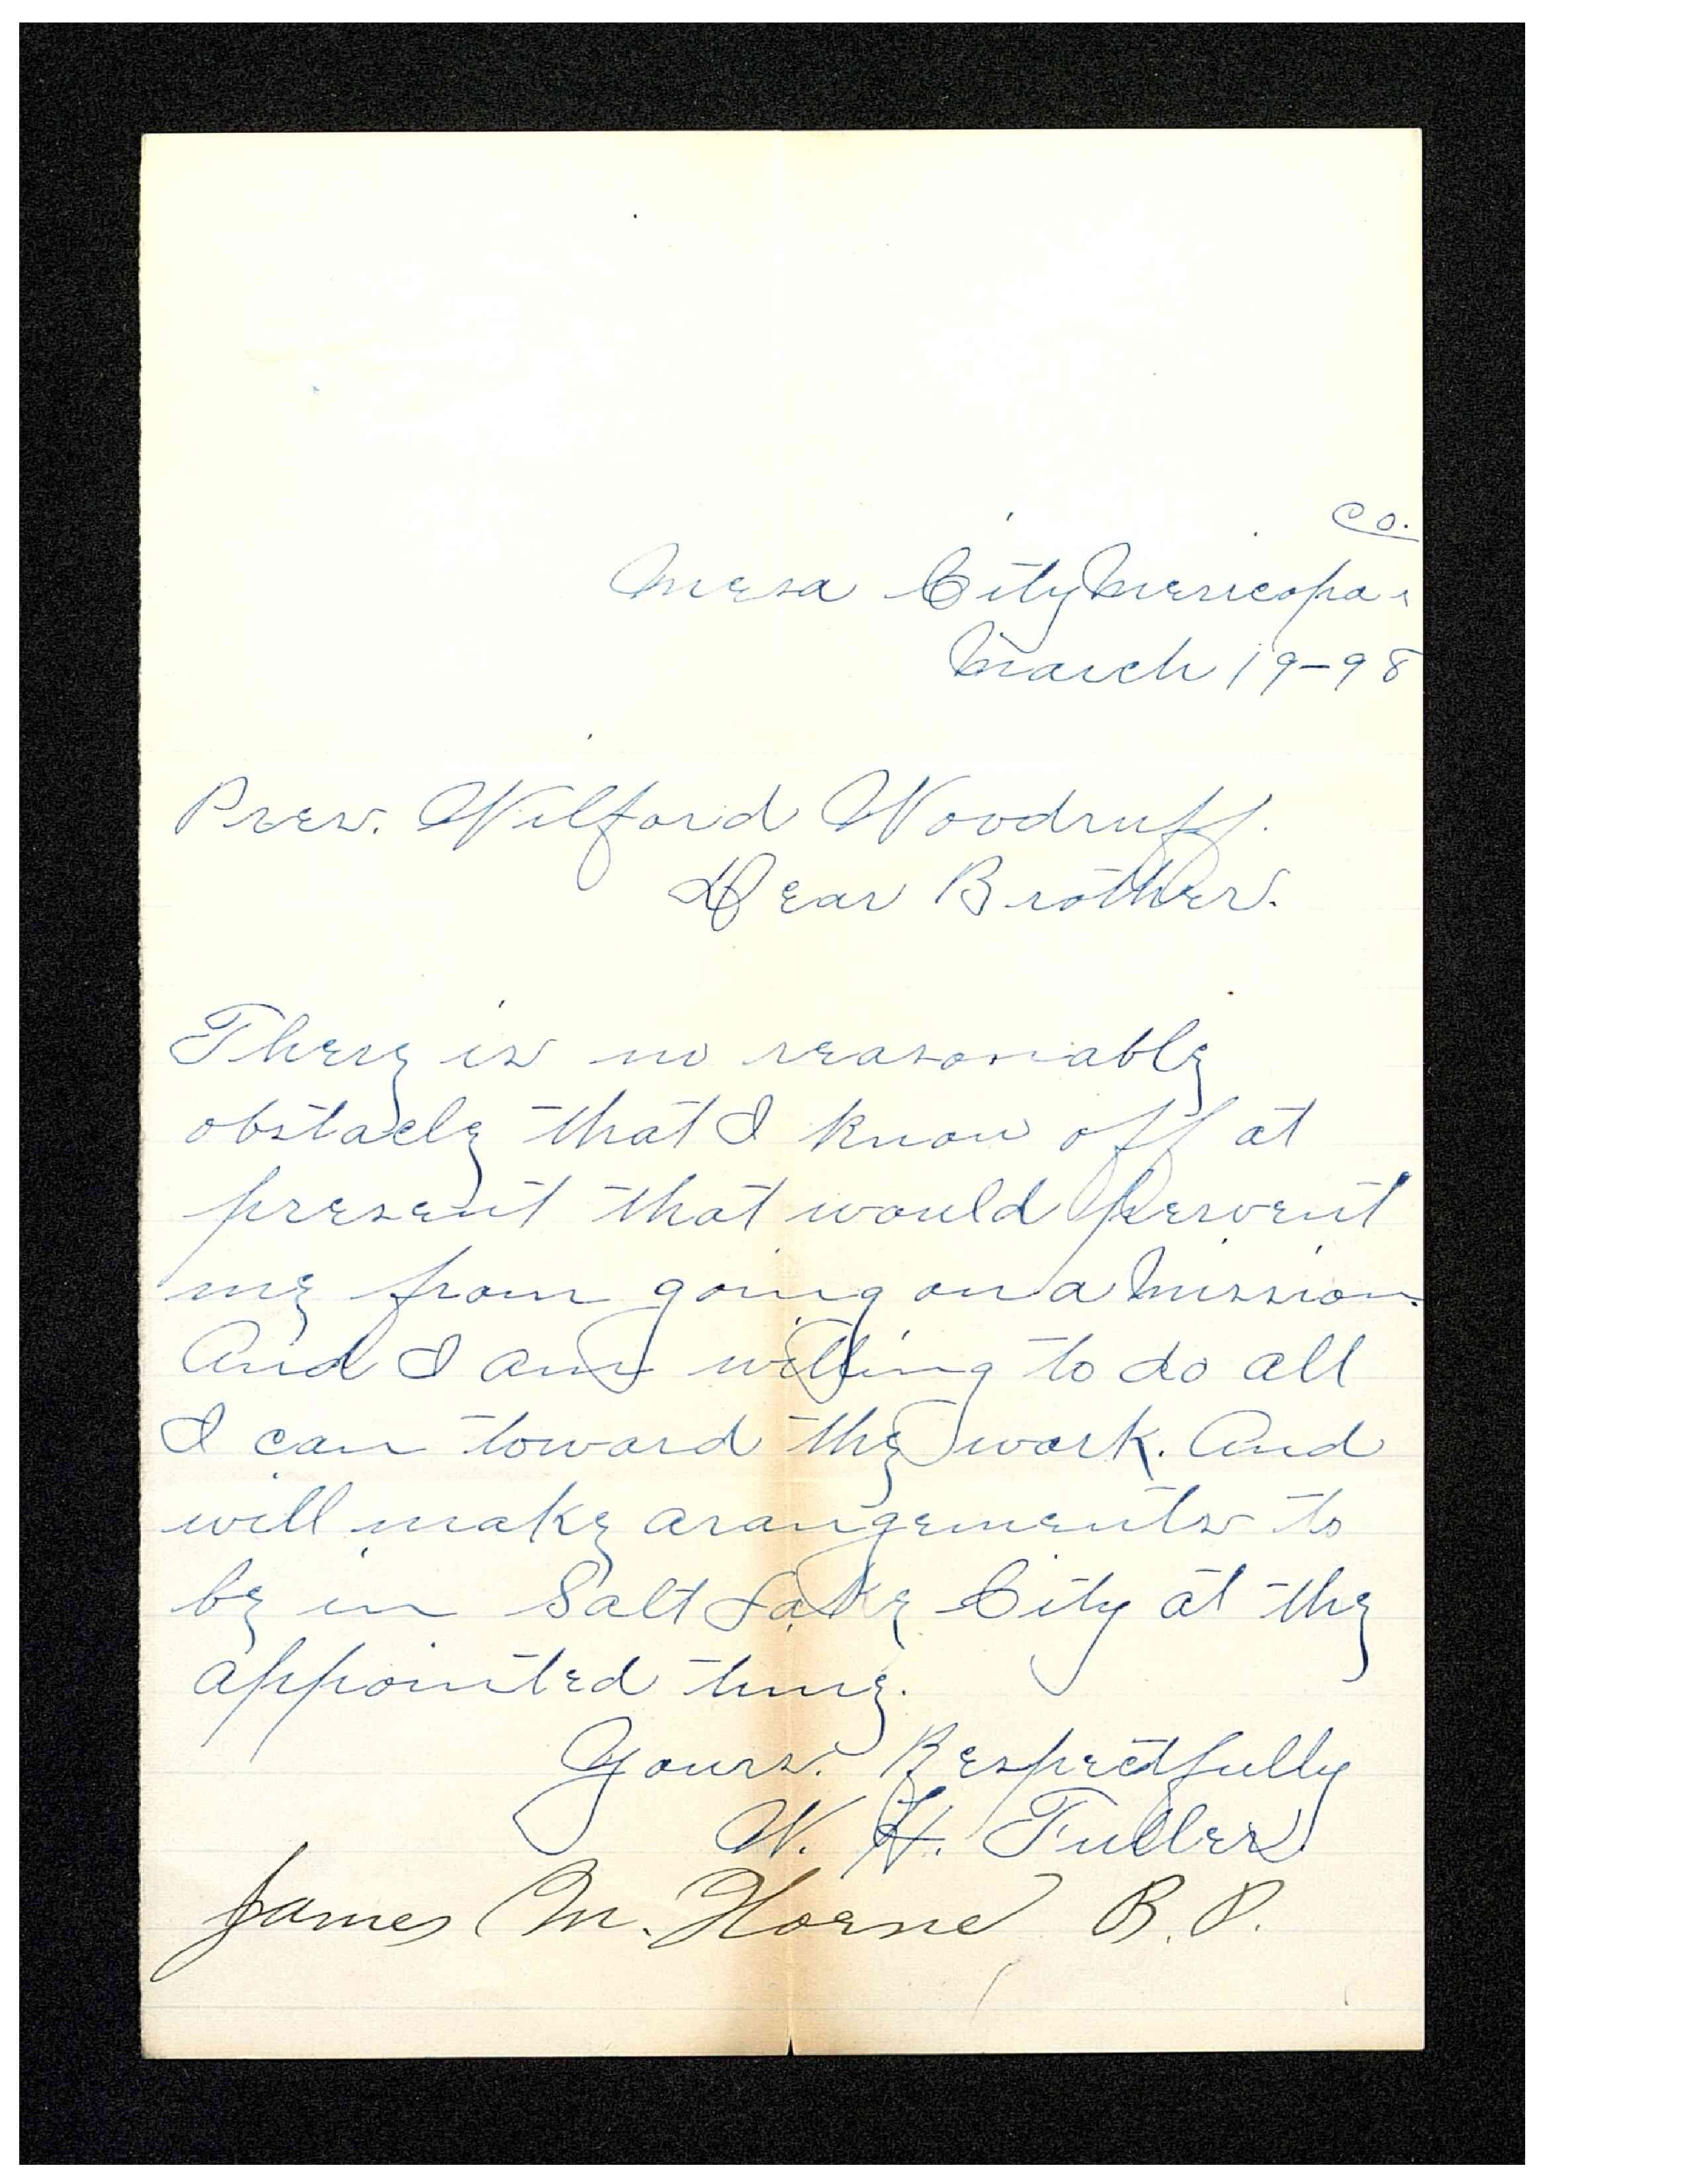 Co.
Mesa City Mericopa
March 19-98
Pres. Wilford Woodruff.
Dear Brother.
There is no reasonable
obstacle that I know off at
present that would pervent
me from going on a Mission.
And I am willing to do all
I can toward the work. And
will make arangements to
be in Salt Lake City at the
appointed time.
Yours. Respectfully
W. H. Fuller
James M. Horne B.P.